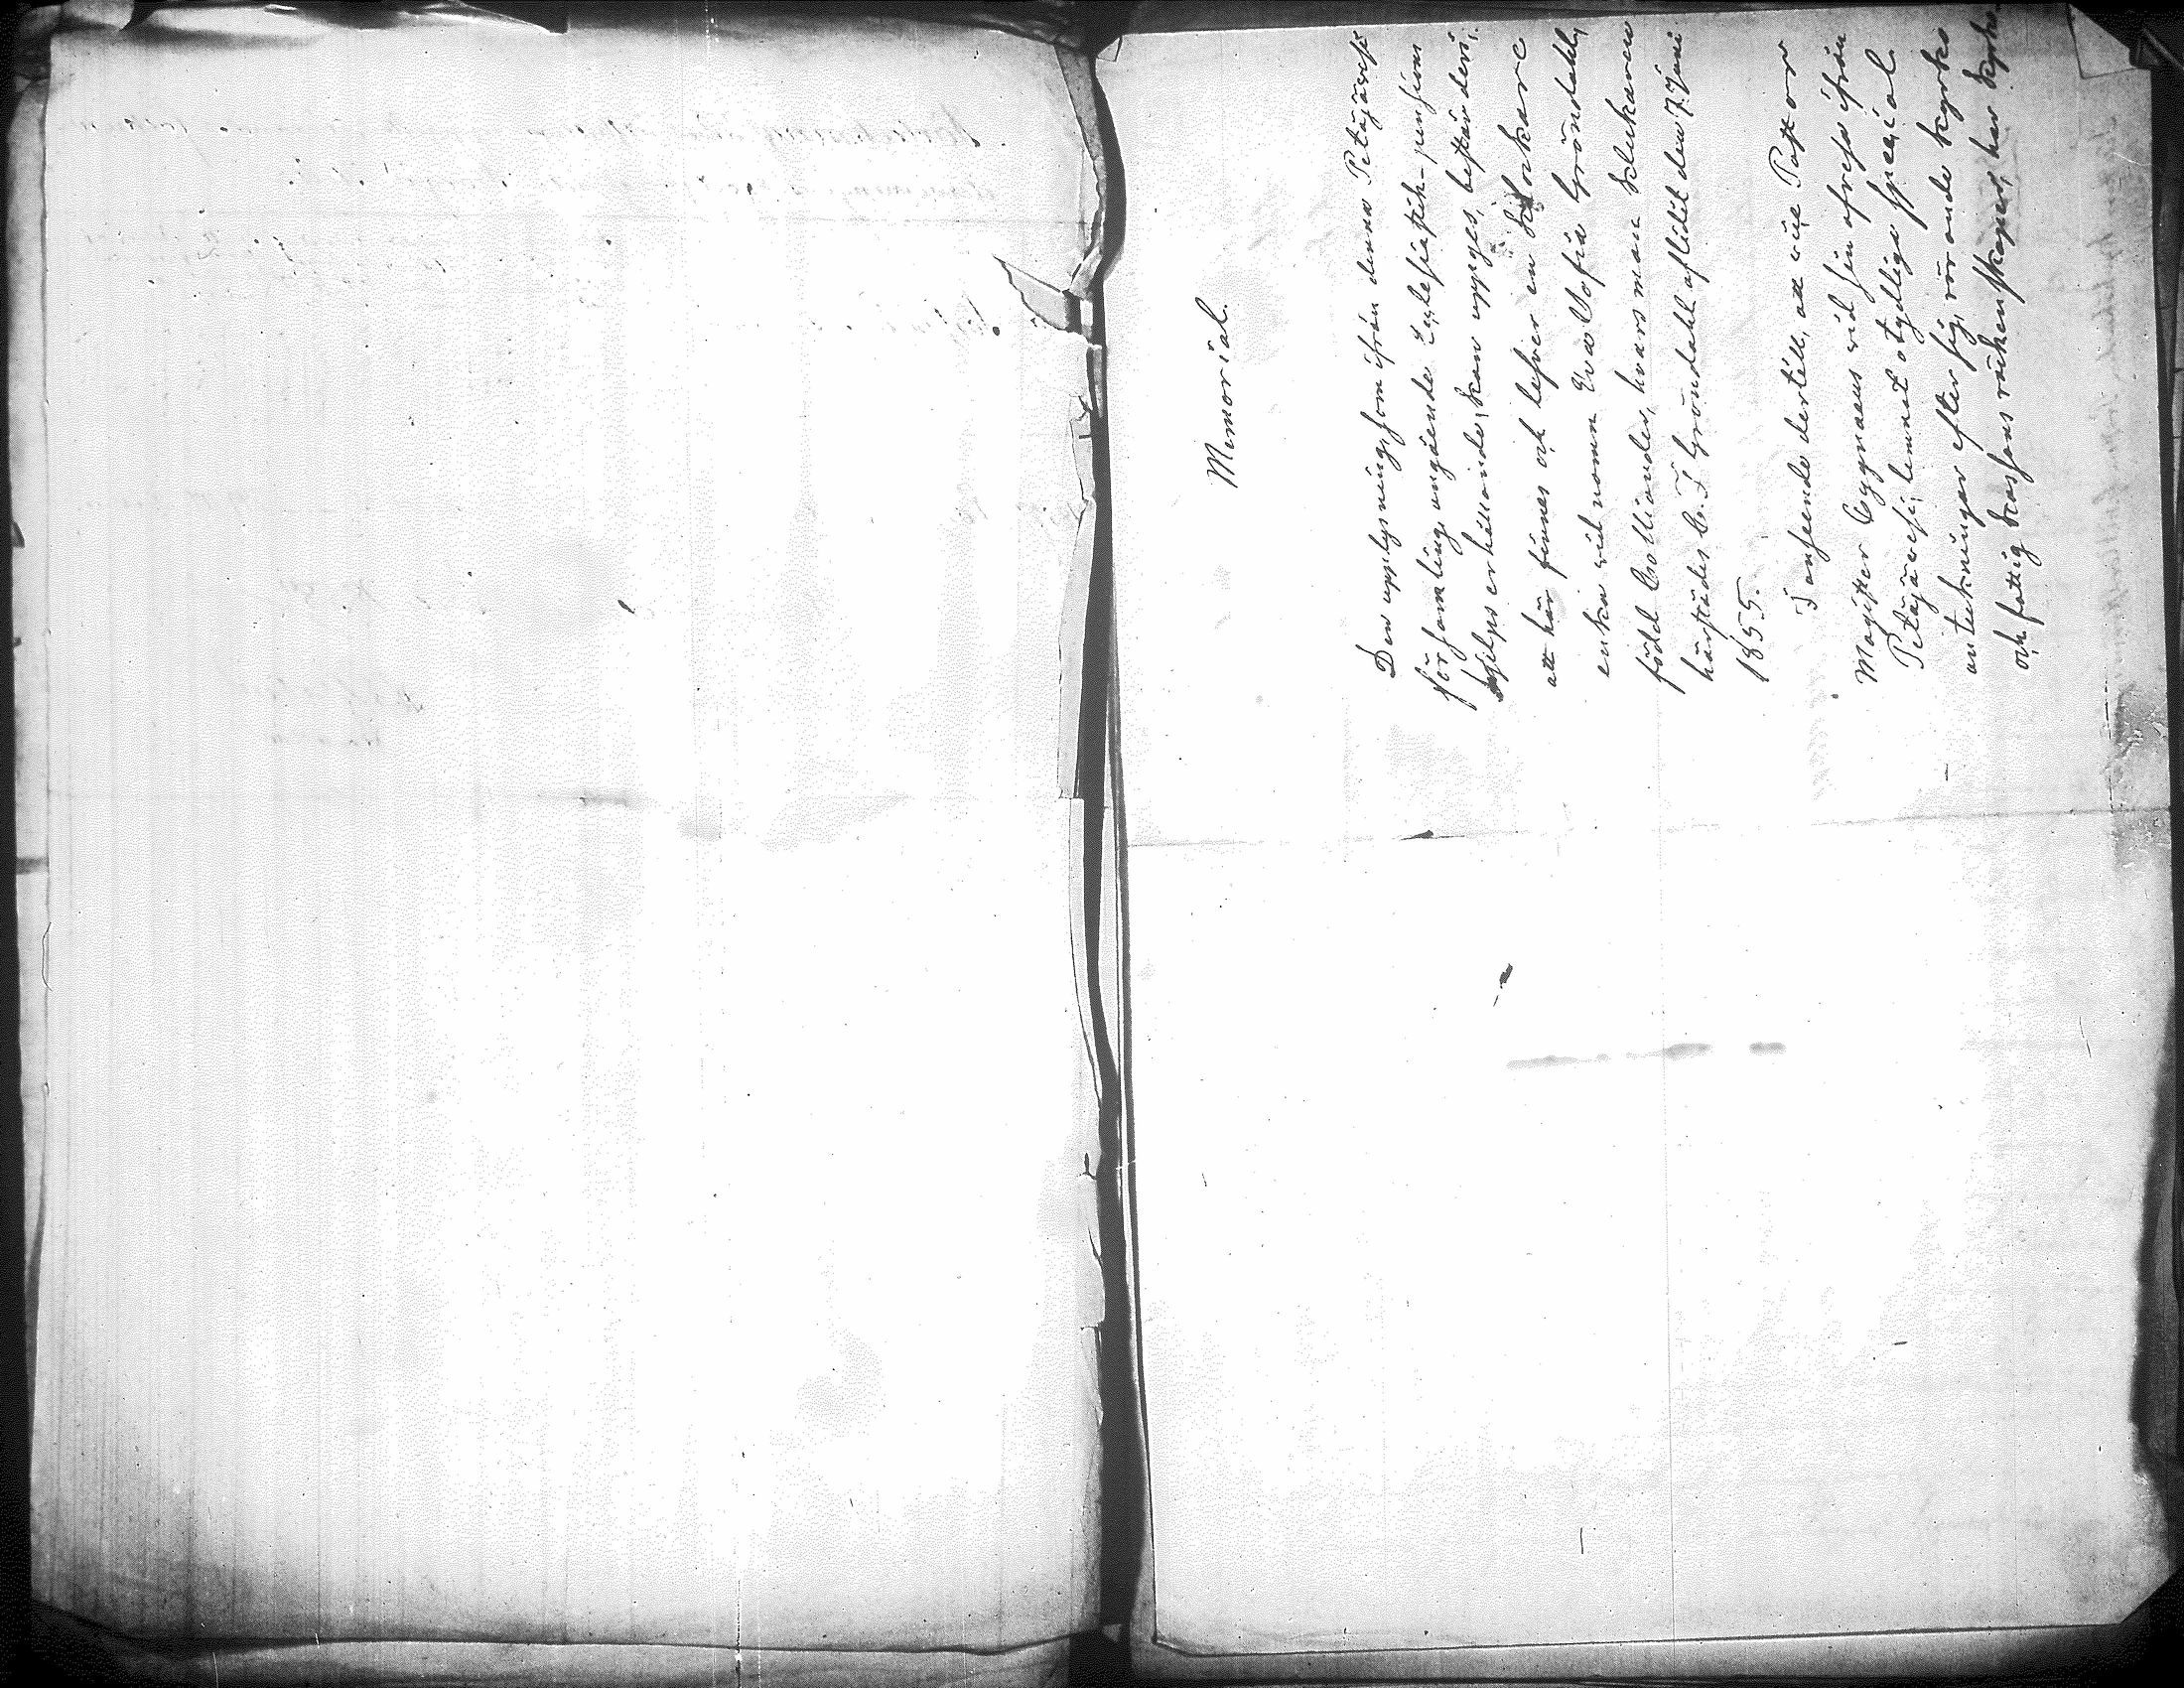 Memorial.
Den upplysning, som ifrån denna Petäjävesi
församling angående Ecclesiastik-pensions
hjelps erhållande, kan uppges, består deri,
att här finnes och lefver en Klockare
enka vid namn Eva Sofia Gröndahl,
född Colliander, hvars man Klockaren
härstädes C. J. Gröndahl aflidit den 7 Juni
1855.
I anseende dertill, att vice Pastor
Magister Cygnaeus vid sin afresa ifrån
Petäjävesi, lemnat otydliga special
anteckningar efter sig, rörande kyrko
och fattig kassans räkenskaper, har kyrko-